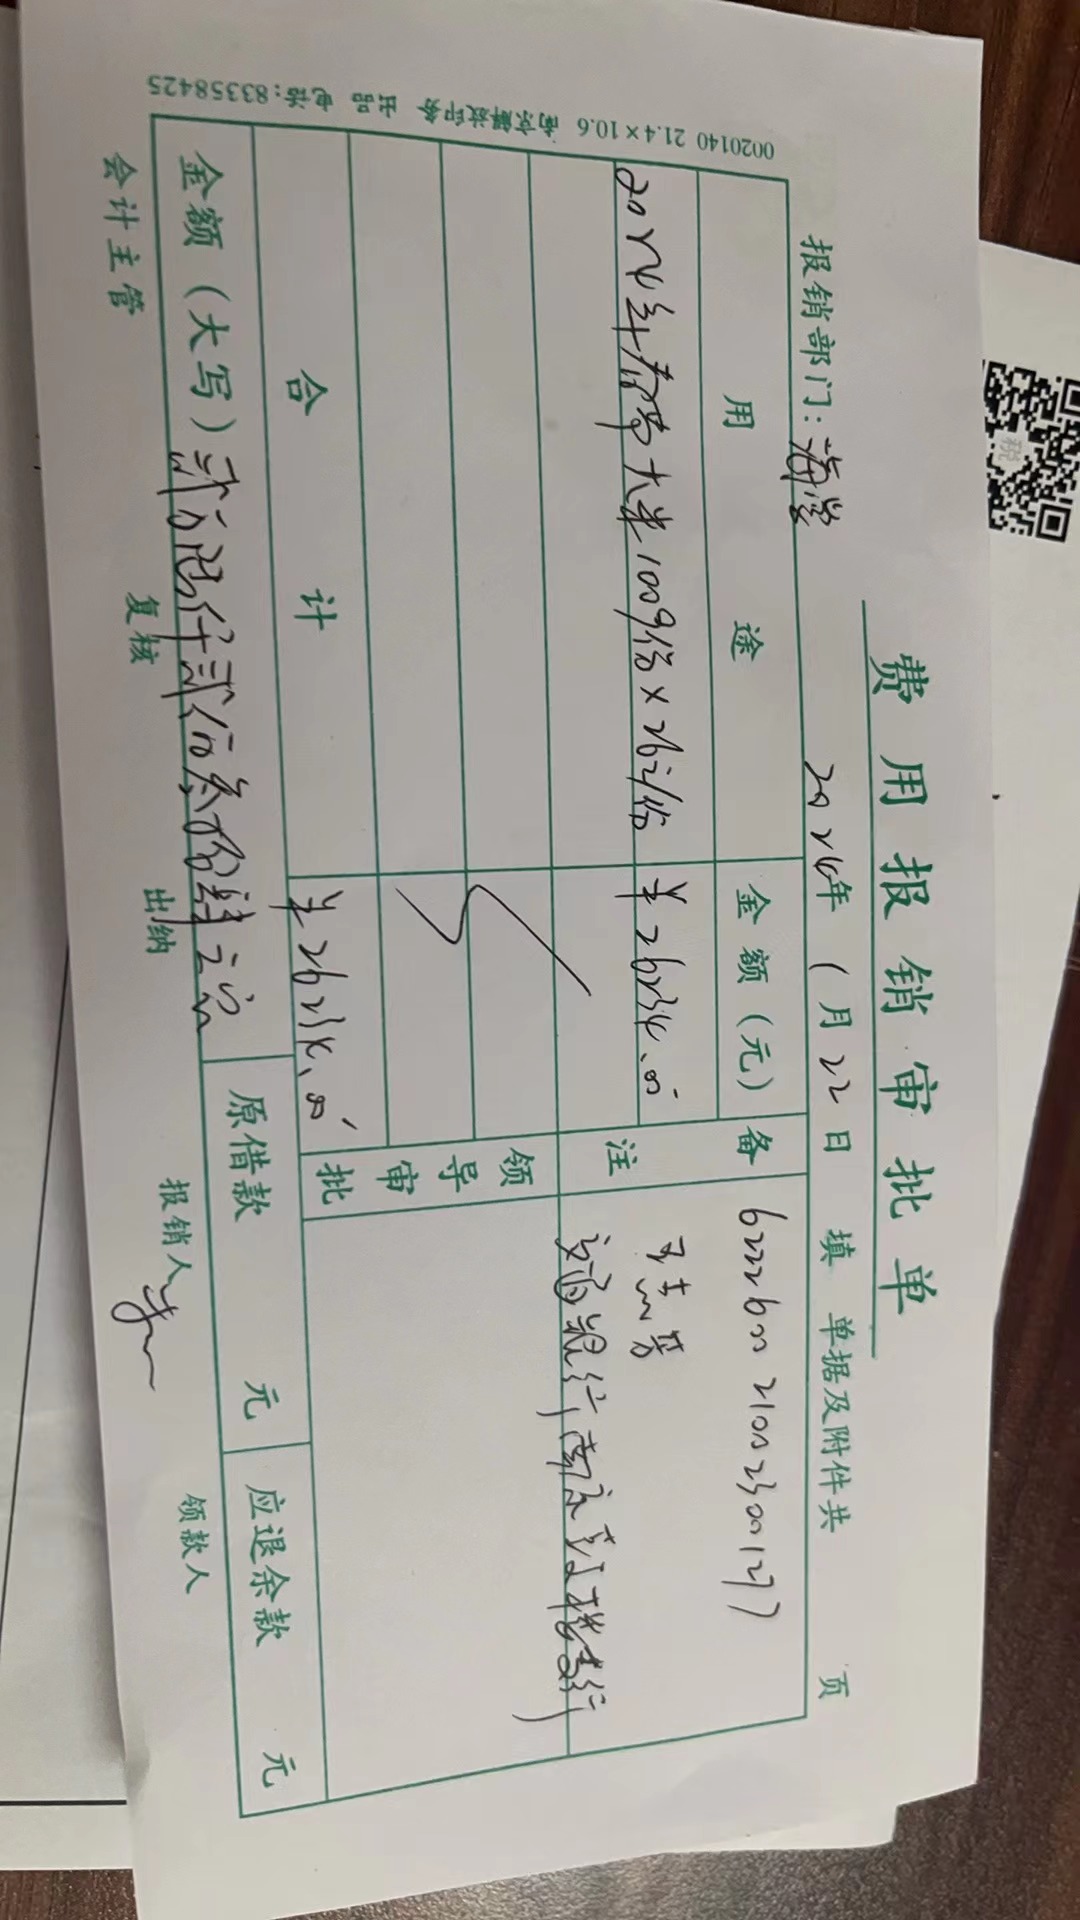 费用报销审批单
报销部门: 海棠 2024年 1月22日 填 单据及附件共 页
用途 金额(元) 备注
2024年春节大米1009份×26元/份 ¥26234.00
6222600210023001277
王志芬
交通银行南京鼓楼支行
领导审批
合计 ¥26234.00
金额(大写) 贰万陆仟贰佰叁拾肆元正 原借款 元 应退余款 元
会计主管 复核 出纳 报销人 领款人
0020140 21.4×10.6 南京解放印务 出品 电话:83358425
税